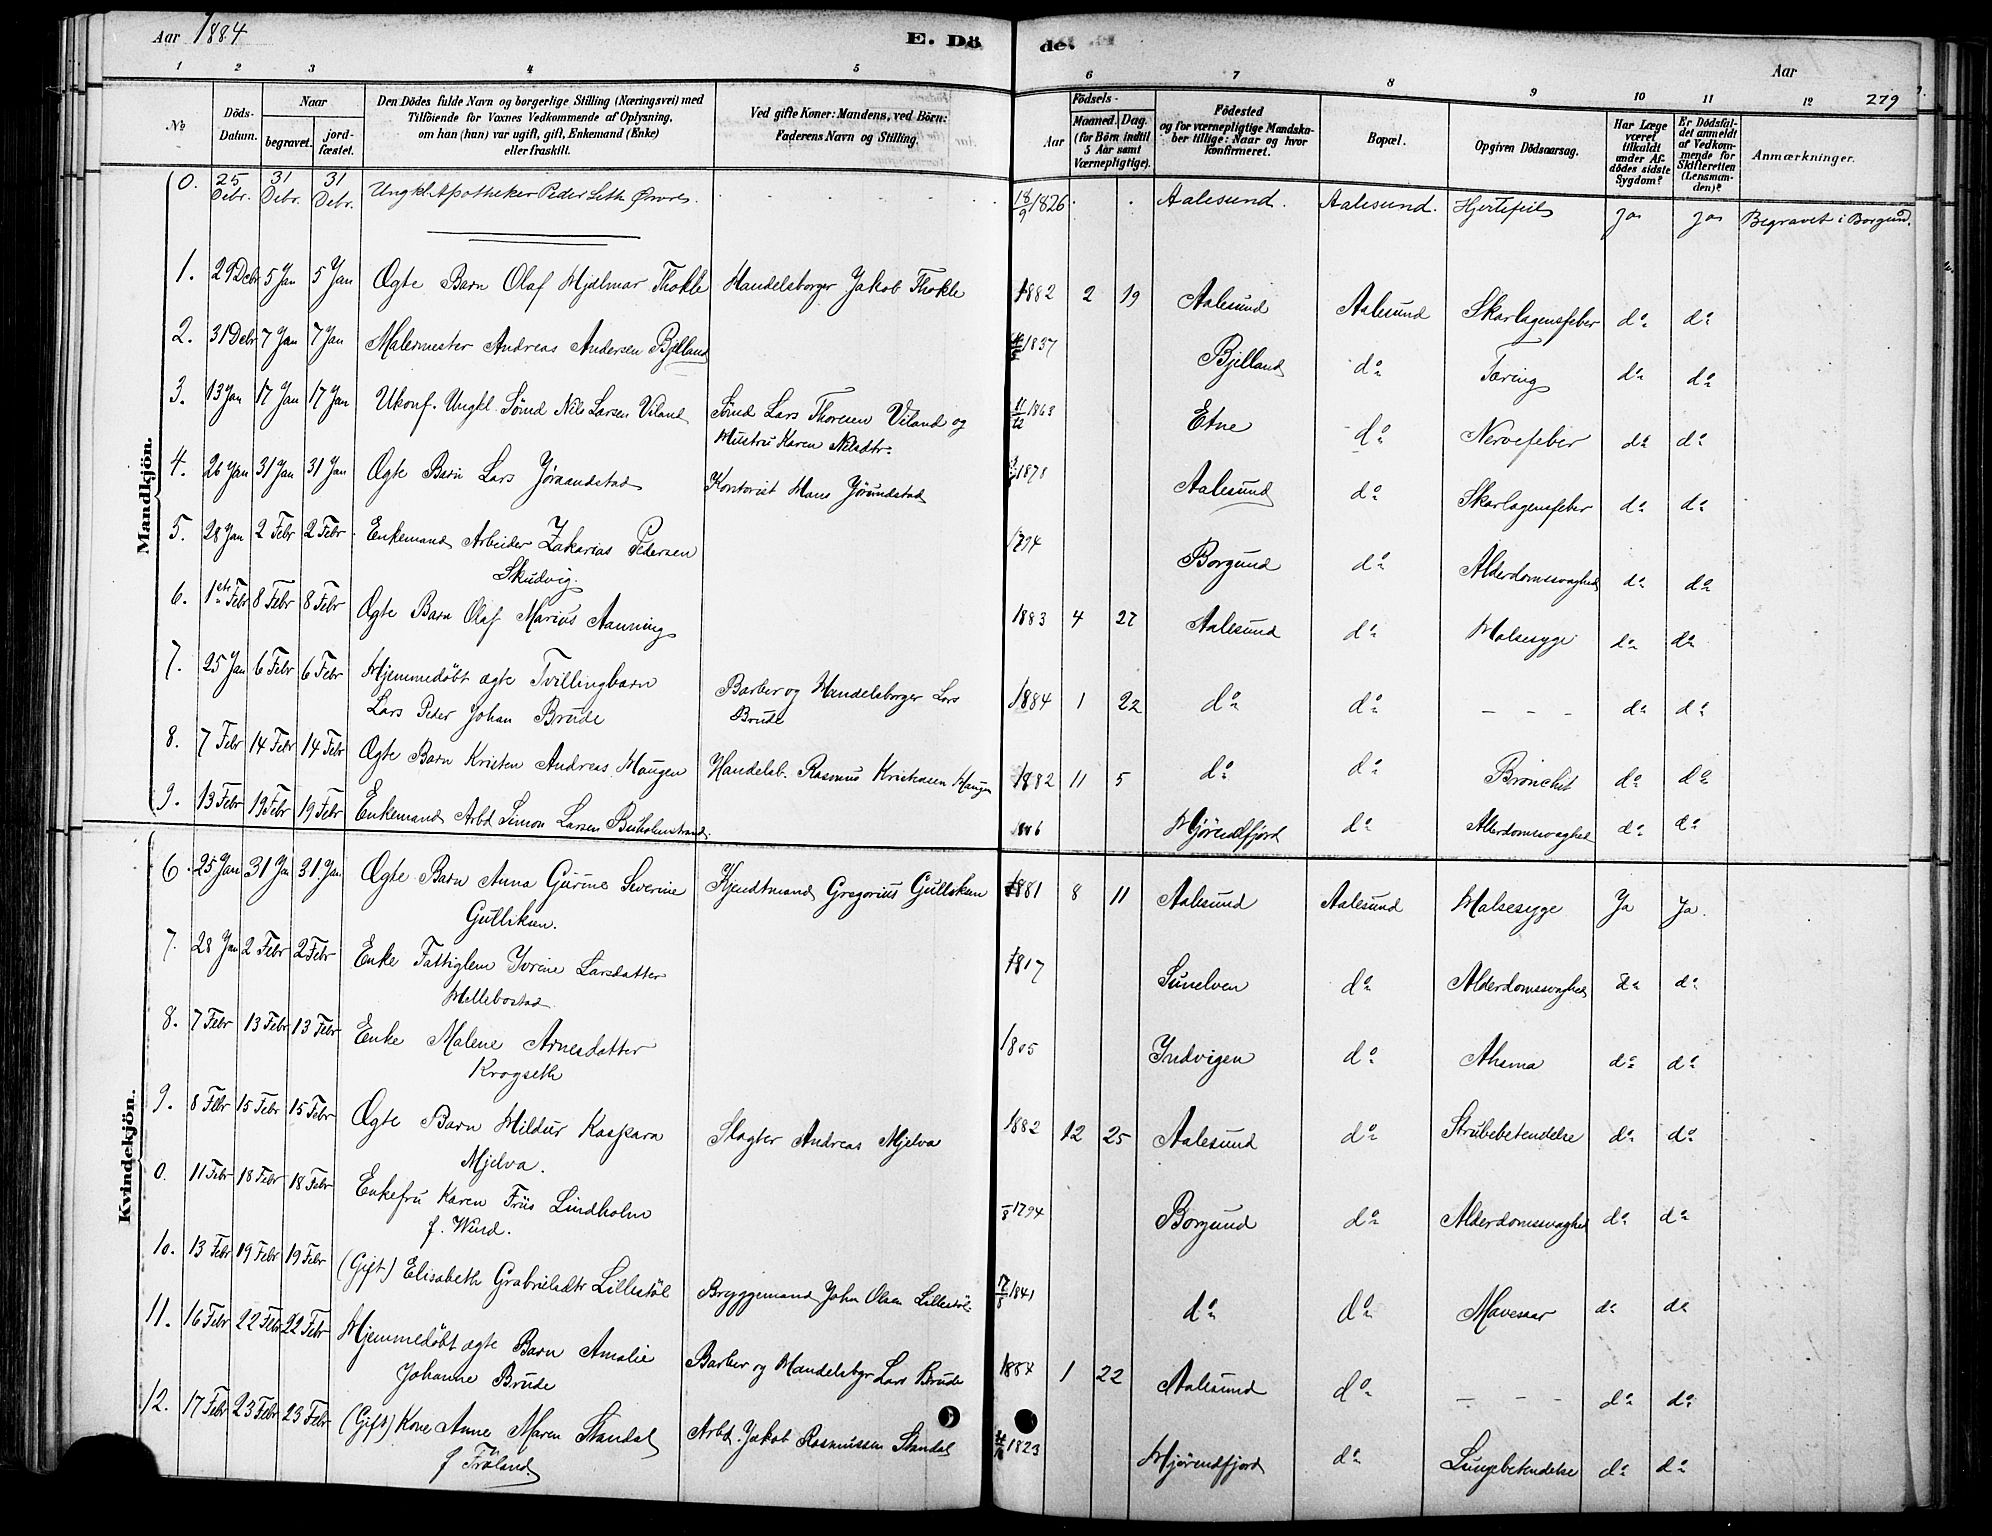 Aar 1884
E. Dö
de.
Aar
279
1 2 3 4 5 6 7 8 9 10 11 12
No
Döds-Datum.
Naar
begravet.
jord-fæstet.
Den Dödes fulde Navn og borgerlige Stilling (Næringsvei) med
Tilföiende for Voxnes Vedkommende af Oplysning,
om han (hun) var ugift, gift, Enkemand (Enke)
eller fraskilt.
Ved gifte Koner: Mandens, ved Börn:
Faderens Navn og Stilling.
Födsels-
Aar
Maaned. Dag.
(for Börn indtil
5 Aar samt
Værnepligtige).
Födested
og for værnepligtige Mandska-
ber tillige: Naar og hvor
konfirmeret.
Bopæl.
Opgiven Dödsaarsag.
Har Læge
været
tilkaldt
under Af-
dödes sidste
Sygdom?
Er Dödsfal-
det anmeldt
af Vedkom-
mende for
Skifteretten
(Lensman-
den)?
Anmærkninger.
Mandkjön.
0. 25 Debr. 31 Debr. 31 Debr. Ungkl. Apotheker Peder Leth 18/9 1826 Aalesund. Aalesund. Hjertefeil ja ja Begravet i Borgund.
1. 29 Debr 5 Jan 5 Jan Ægte Barn Olaf Hjalmar Thokle Handelsborger Jakob Thokle 1882 2 19 Aalesund Aalesund Skarlagensfeber do do
2. 31 Debr 7 Jan 7 Jan Malermester Andreas Andersen Bjelland 1837 Bjelland do Tæring do do
3. 13 Jan 17 Jan 17 Jan Ukonf. Ungkl. Sønd Nils Larsen Viland Sønd Lars Thoresen Viland og
Hustru Karen Nilsdtr. 11/12 1868 Etne do Nervefeber do do
4. 26 Jan 31 Jan 31 Jan Ægte Barn Lars Jørundstad Kontorist Hans Jørundstad 1878 Aalesund do Skarlagensfeber do do
5. 28 Jan 2 Febr 2 Febr. Enkemand Arbeider Zakarias Pedersen
Skudvig. 1794 Borgund do Alderdomssvaghed do do
6. 1ste Febr 8 Febr 8 Febr Ægte Barn Olaf Marius Aanning 1883 4 27 Aalesund do Halsesyge do do
7. 25 Jan 6 Febr 6 Febr Hjemmedøbt ægte Tvillingbarn
Lars Peder Johan Brude Barber og Handelsborger Lars
Brude 1884 1 22 do do - - - do do
8. 7 Febr 14 Febr 14 Febr Ægte Barn Kristen Andreas Haugen Handelsb. Rasmus Kristiansen Haugen 1882 11 5 do do Bronchit do do
9. 13 Febr 19 Febr 19 Febr Enkemand Arbd Simon Larsen Buholmstrand. Hjørendfjord do Alderdomssvaghed do do
Kvindekjön.
6. 25 Jan 31 Jan 31 Jan Ægte Barn Anna Gurine Severine
Gulliksen. Kjendtmand Gregorius Gulliksen 1881 8 11 Aalesund Aalesund Halsesyge Ja Ja.
7. 28 Jan 2 Febr 2 Febr Enke Fattiglem Iverine Larsdatter
Hellebostad 1817 Sunelven do Alderdomssvaghed do do
8. 7 Febr 13 Febr 13 Febr Enke Malene Arnesdatter
Krogseth 1805 Indvigen do Athsma do do
9. 8 Febr 15 Febr 15 Febr Ægte Barn Hildur Kaspara
Mjelva. Slagter Andreas Mjelva 1882 12 25 Aalesund do Strubebetendelse do do
0. 11 Febr 18 Febr 18 Febr Enkefru Karen Friis Lindholm
f. Wind. 1794 Borgund do Alderdomssvaghed do do
10. 13 Febr 19 Febr 19 Febr (Gift) Elisabeth Grabrielsdtr Lillestøl Bryggemand John Olsen Lillestøl 17/8 1841 do do Mavesaar do do
11. 16 Febr 22 Febr 22 Febr Hjemmedøbt ægte Barn Amalie
Johanne Brude Barber og Handelsbgr Lars Brude 1884 1 22 Aalesund do - - - do do
12. 17 Febr 23 Febr 23 Febr (Gift) Kone Anne Maren Standal
f Frøland. Arbd. Jakob Rasmussen Standal 1823 Hjørendfjord do Lungebetendelse do do